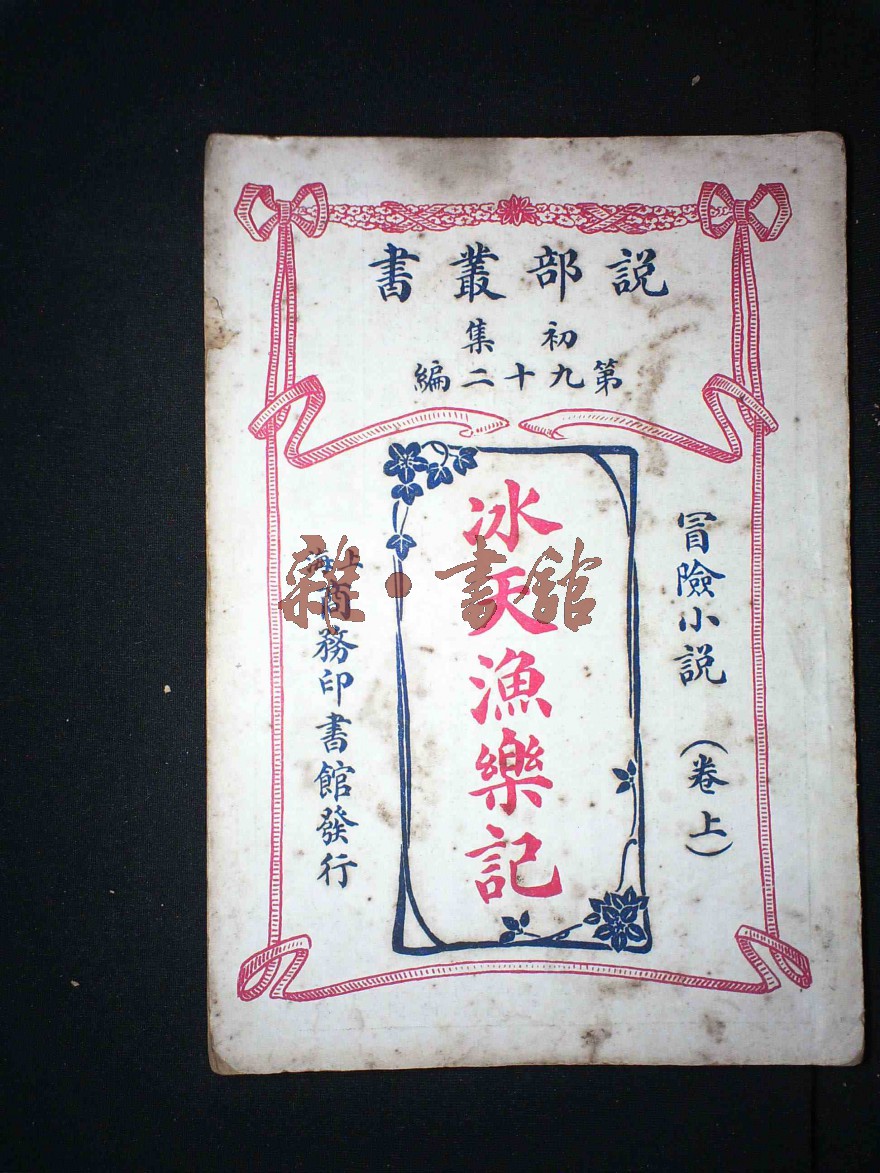 説部叢書
初集
第九十二編
冒險小説 (卷上)
冰天漁樂記
上海商務印書館發行
雜·書館